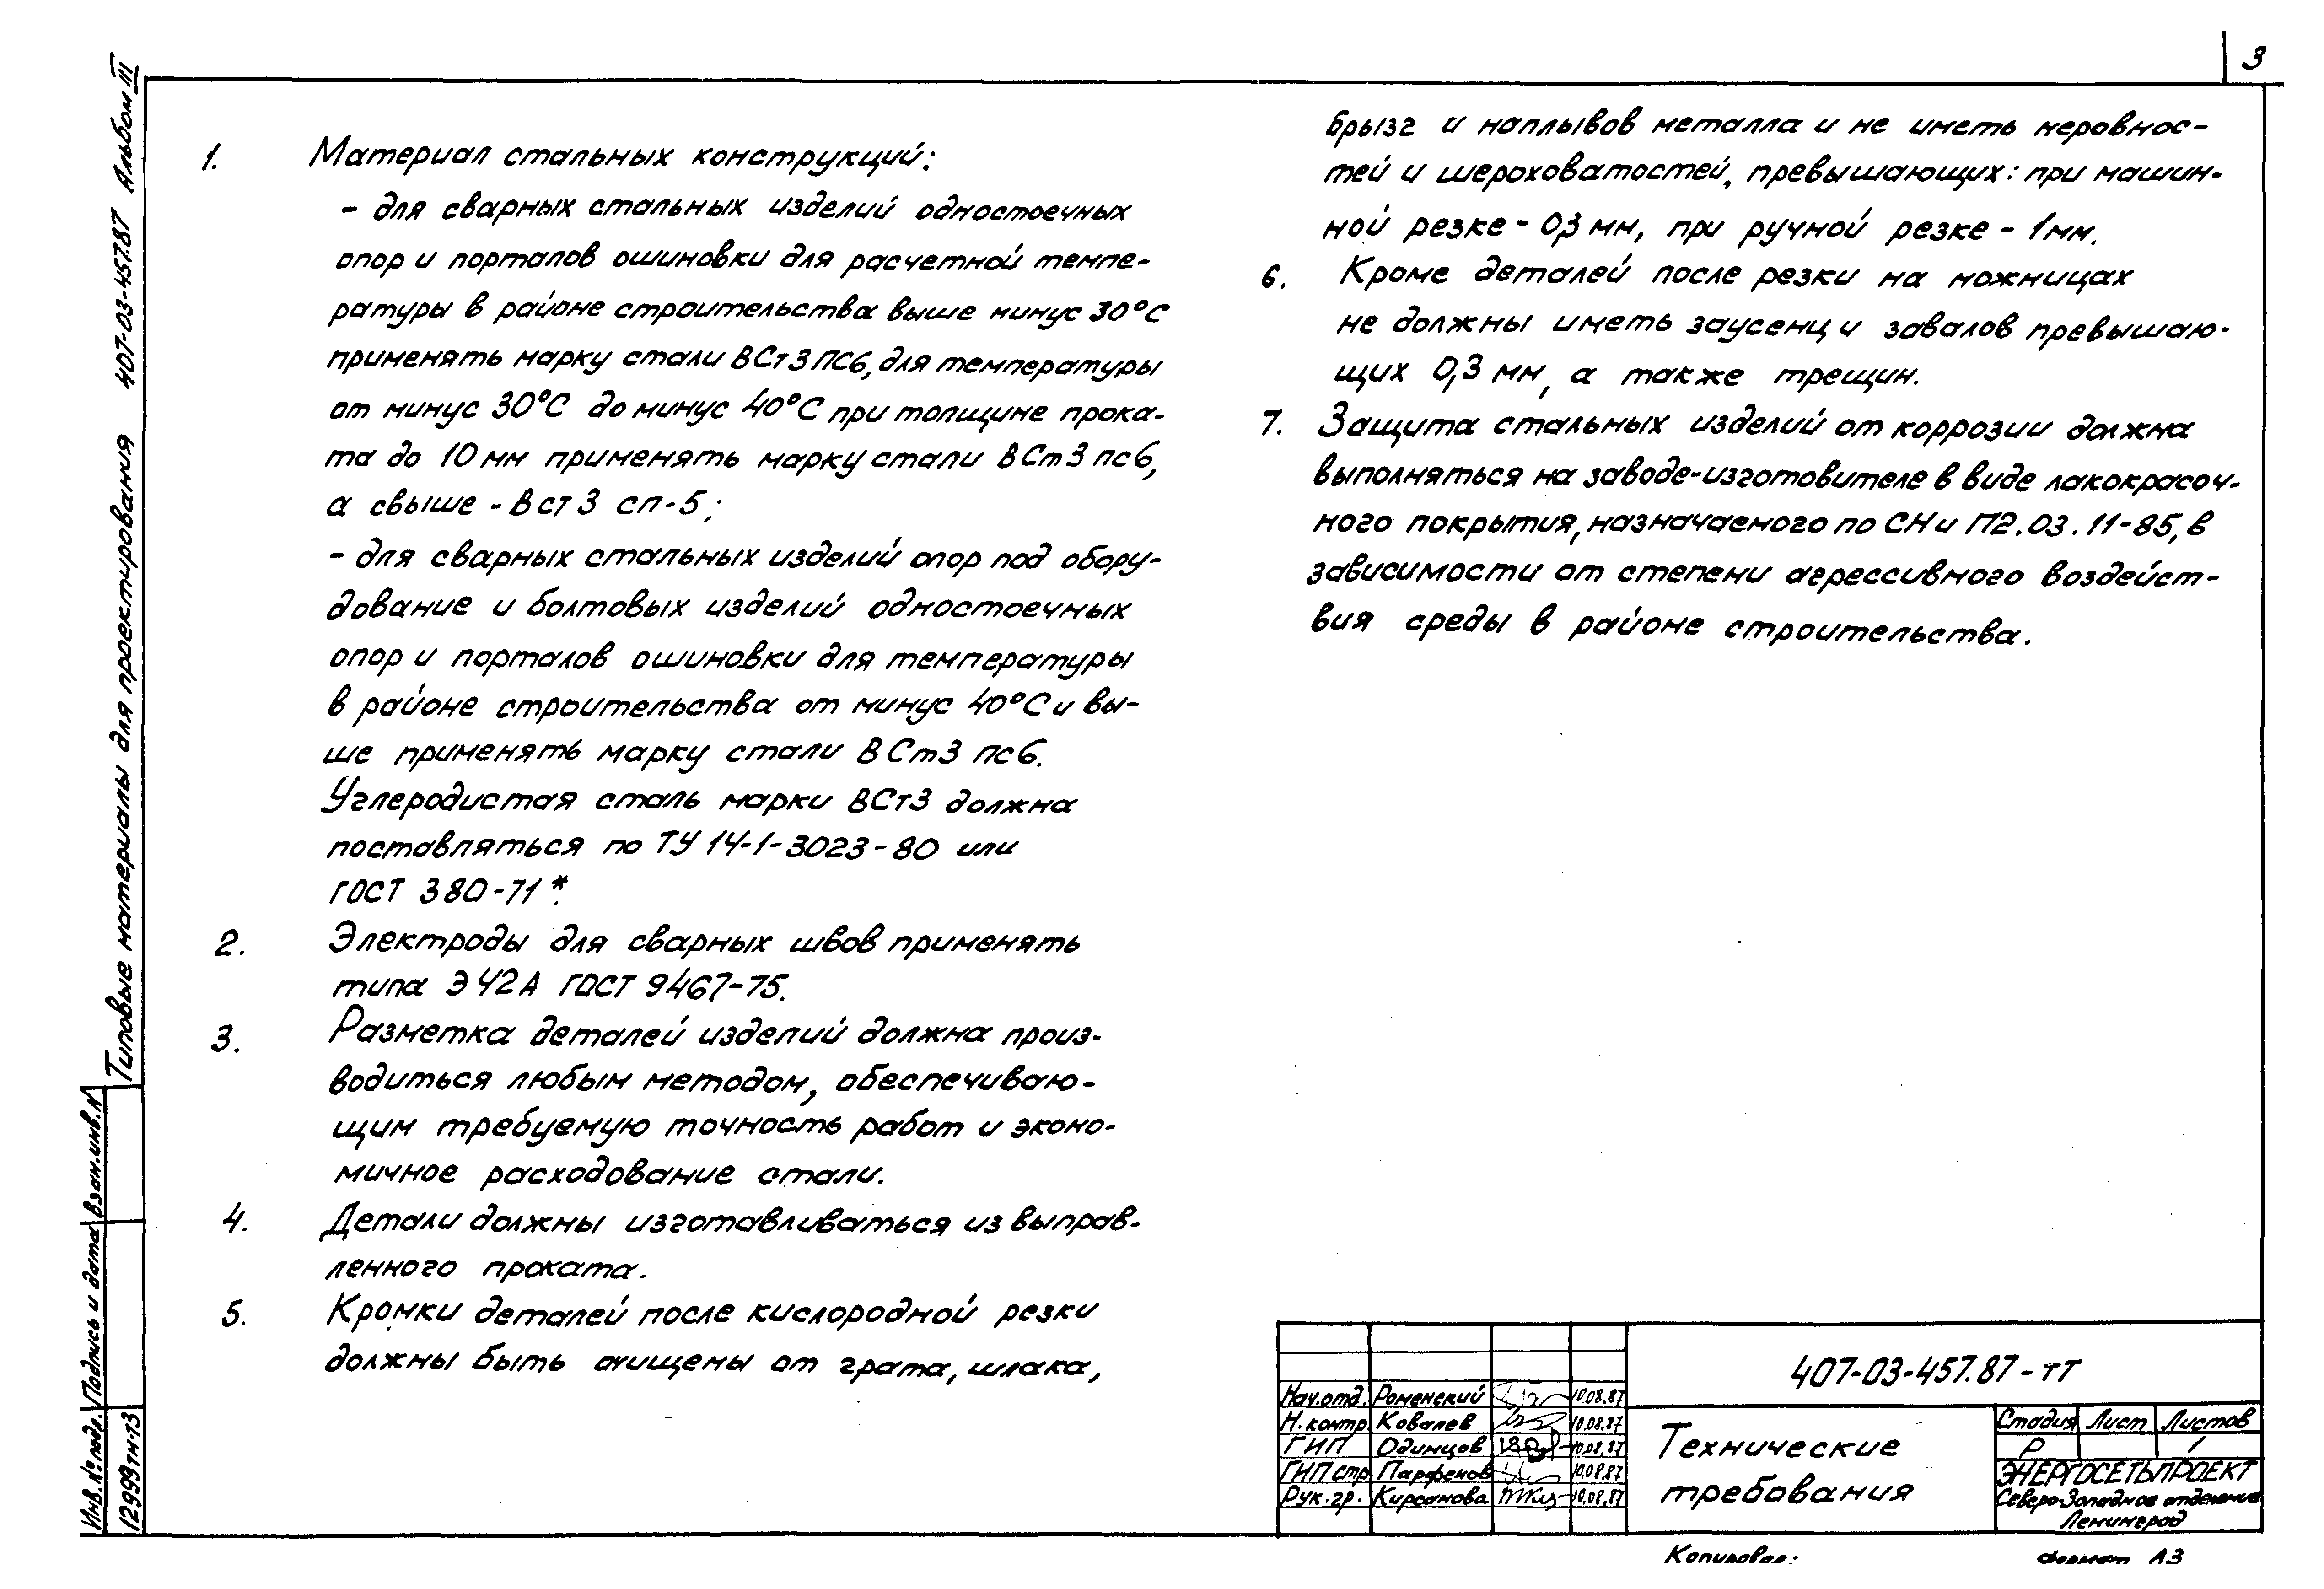 3
Типовые материалы для проектирования 407-03-457.87 Альбом III
1. Материал стальных конструкций:
- для сварных стальных изделий одностоечных
опор и порталов ошиновки для расчетной темпе-
ратуры в районе строительства выше минус 30°С
применять марку стали ВСт3пс6, для температуры
от минус 30°С до минус 40°С при толщине прока-
та до 10 мм применять марку стали ВСт3пс6,
а свыше - Вст3 сп-5;
- для сварных стальных изделий опор под обору-
дование и болтовых изделий одностоечных
опор и порталов ошиновки для температуры
в районе строительства от минус 40°С и вы-
ше применять марку стали ВСт3 пс6.
Углеродистая сталь марки ВСт3 должна
поставляться по ТУ 14-1-3023-80 или
ГОСТ 380-71*.
2. Электроды для сварных швов применять
типа Э42А ГОСТ 9467-75.
3. Разметка деталей изделий должна произ-
водиться любым методом, обеспечиваю-
щим требуемую точность работ и эконо-
мичное расходование стали.
4. Детали должны изготавливаться из выправ-
ленного проката.
5. Кромки деталей после кислородной резки
должны быть очищены от грата, шлака,
брызг и наплывов металла и не иметь неровнос-
тей и шероховатостей, превышающих: при машин-
ной резке - 0,3 мм, при ручной резке - 1мм.
6. Кроме деталей после резки на ножницах
не должны иметь заусенц и завалов превышаю-
щих 0,3 мм, а также трещин.
7. Защита стальных изделий от коррозии должна
выполняться на заводе-изготовителе в виде лакокрасоч-
ного покрытия, назначаемого по СНиП2.03.11-85, в
зависимости от степени агрессивного воздейст-
вия среды в районе строительства.
Инв.№подл. Подпись и дата Взам.инв.N
12999тм-13
407-03-457.87-ТТ
Нач.отд. Роменский 10.08.87
Н.контр. Ковалев 10.08.87
ГИП Одинцов 10.08.87
ГИП стр Парфенов 10.08.87
Рук.гр. Кирсанова 10.08.87
Технические
требования
Стадия Лист Листов
Р 1
ЭНЕРГОСЕТЬПРОЕКТ
Северо-Западное отделение
Ленинград
Копировал: формат А3